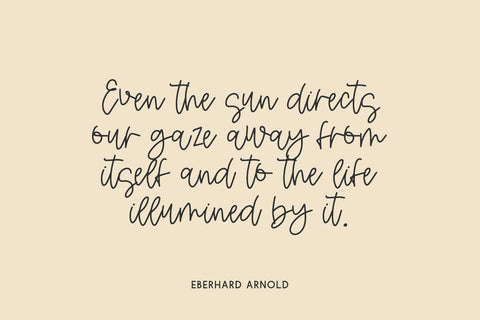 Even the sun directs
our gaze away from
itself and to the life
illumined by it.
EBERHARD ARNOLD